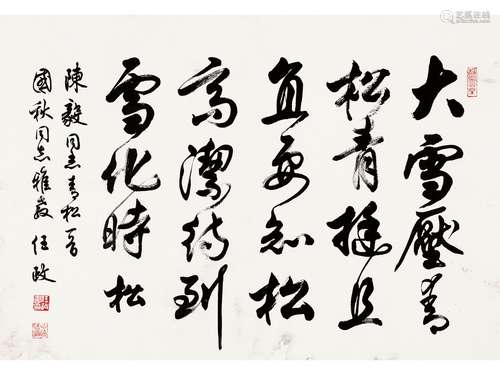 大雪壓青
松青挺且
直要知松
高潔待到
雪化時松
陳毅同志青松一首
國秋同志雅教 任政
艺狐在线